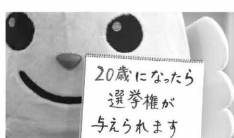 20歳になったら
選挙権が
与えられます